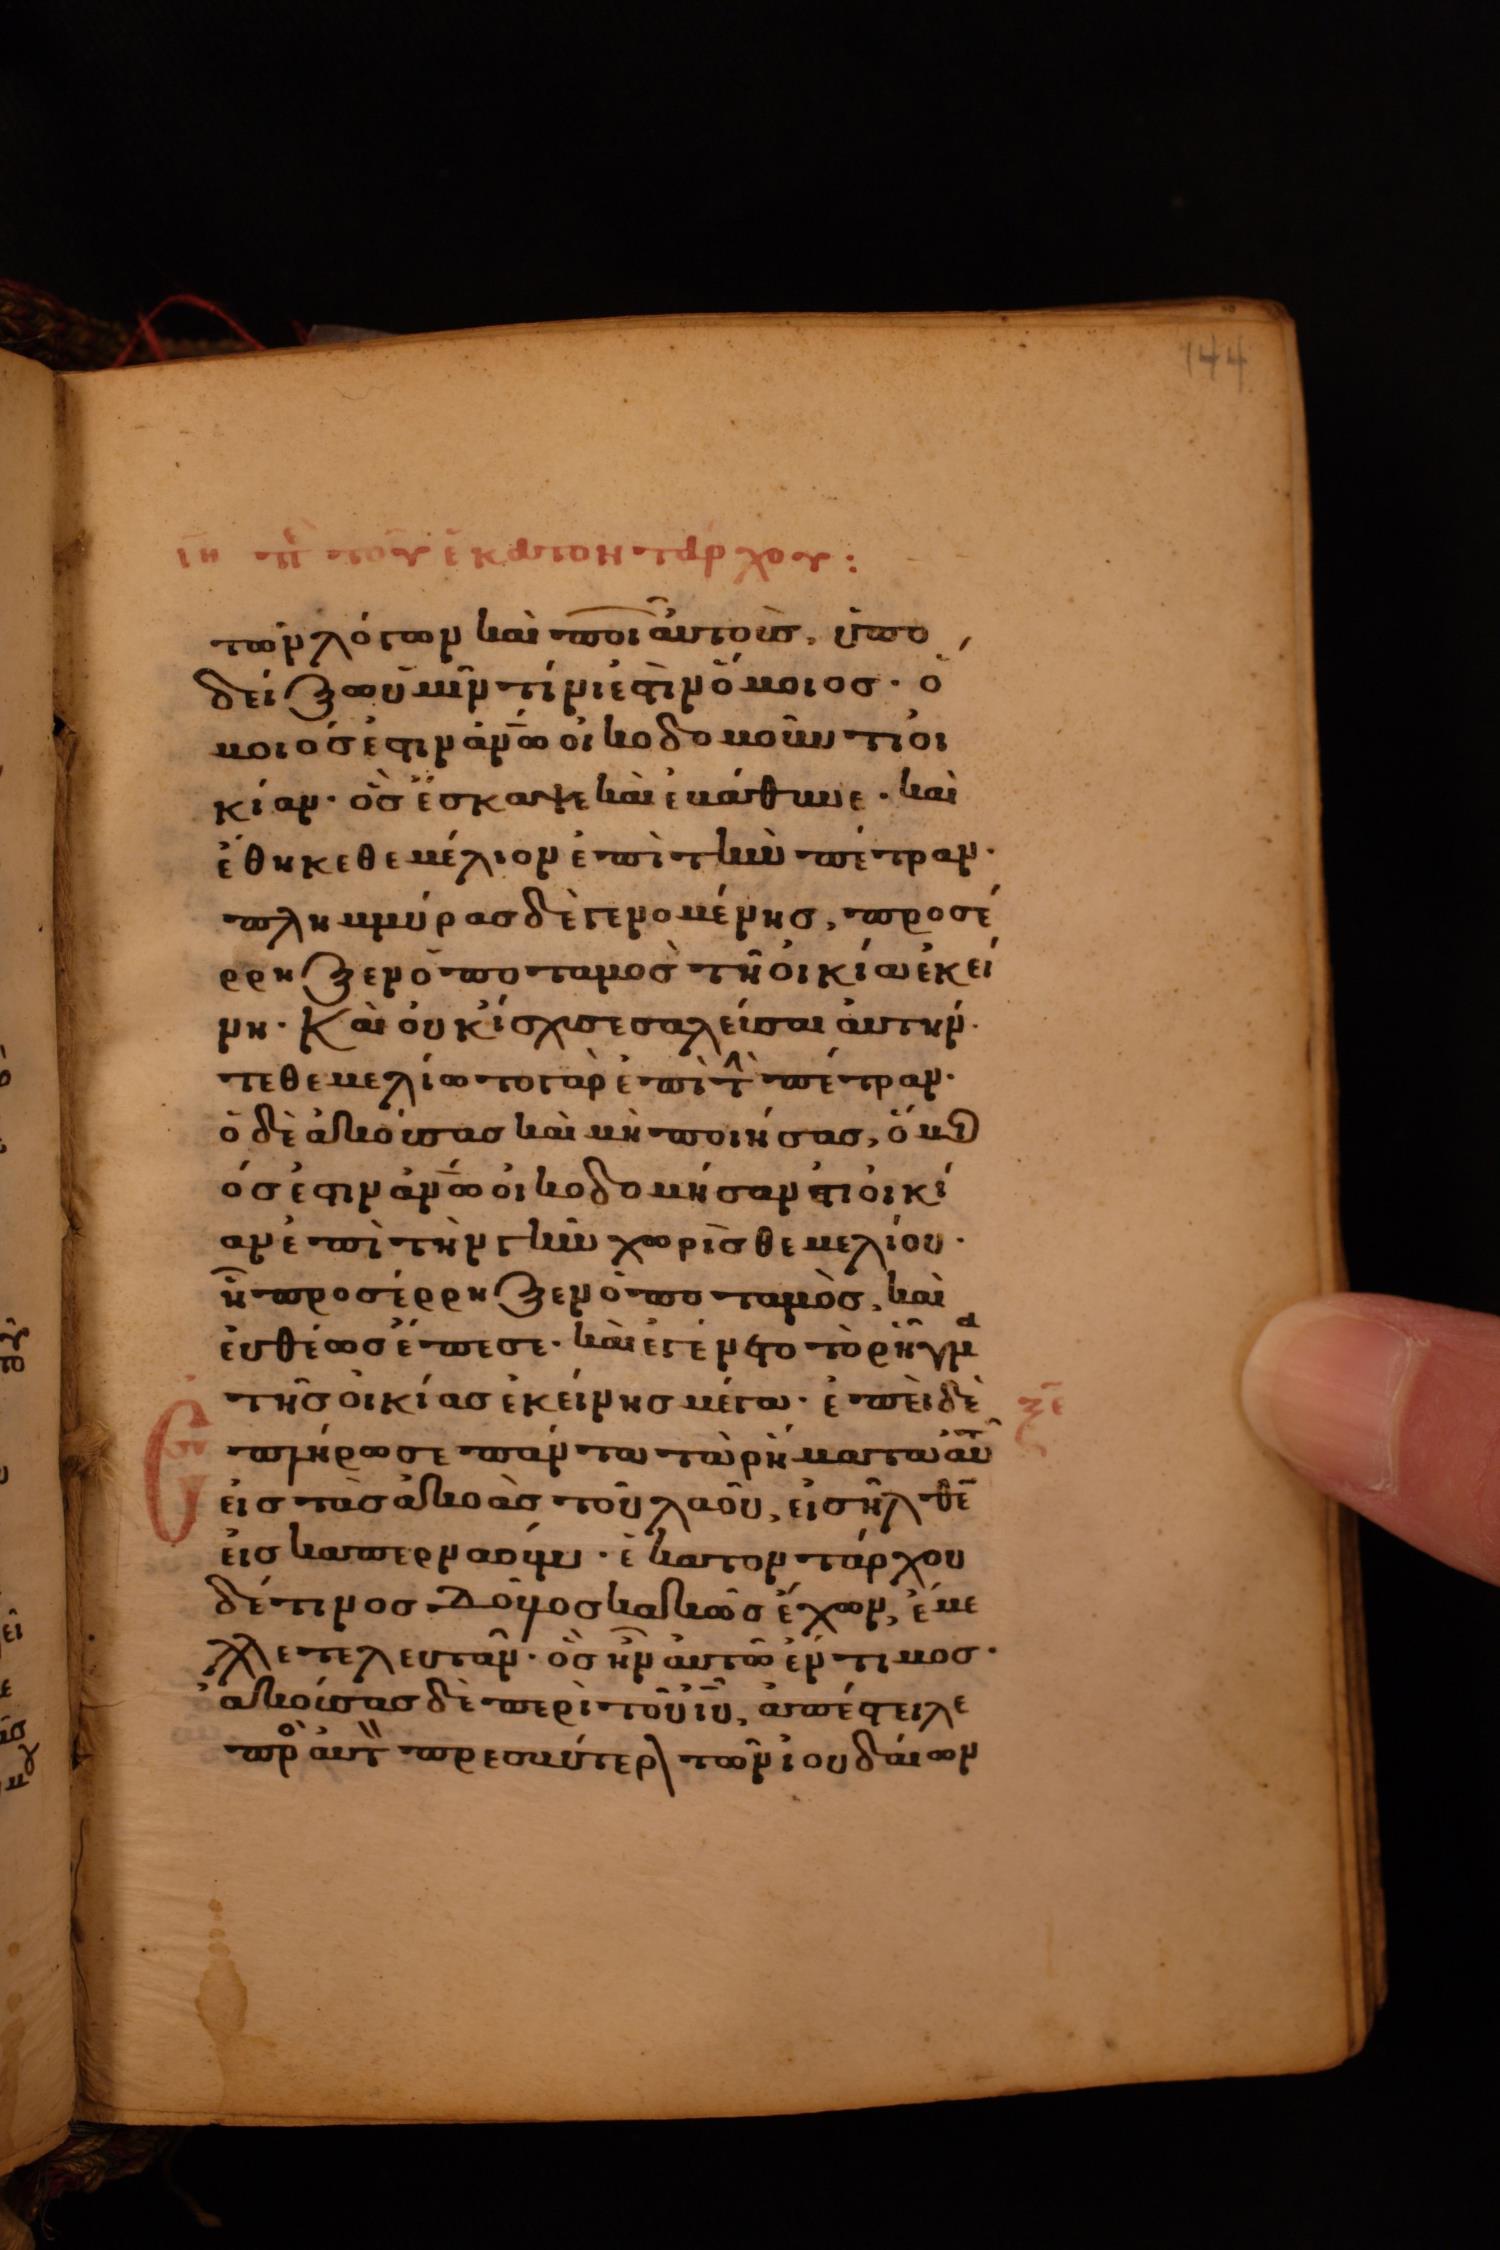 144
ιη περὶ τοῦ ἑκατοντάρχου:
τῶν λόγων καὶ ποιῶν αὐτοὺς, ὑπο
δείξω ὑμῖν τίνι ἐστὶν ὅμοιος· ὅ
μοιός ἐστιν ἀν̅ω̅ οἰκοδομοῦντι οἰ
κίαν· ὃς ἔσκαψε καὶ ἐβάθυνε· καὶ
ἔθηκε θεμέλιον ἐπὶ τὴν πέτραν·
πλημμύρας δὲ γενομένης, προσέ
ρρηξεν ὁ ποταμὸς τῆ οἰκία ἐκεί
νη· Καὶ οὐκ ἴσχυσε σαλεῦσαι αὐτήν·
τεθεμελίωτο γὰρ ἐπὶ τ̀ πέτραν·
ὁ δὲ ἀκούσας καὶ μὴ ποιήσας, ὅμοι
ός ἐστιν ἀν̅ω̅ οἰκοδομήσαντι οἰκί
αν ἐπὶ τὴν γῆν χωρὶς θεμελίου·
ἧ προσέρρηξεν ὁ ποταμὸς, καὶ
εὐθέως ἔπεσε· καὶ ἐγένετο τὸ ῥῆγμα
τῆς οἰκίας ἐκείνης μέγα· ἐπεὶ δὲ
ξε
Ἐπλήρωσε πάντα τὰ ῥήματα αὐτ
εἰς τὰς ἀκοὰς τοῦ λαοῦ, εἰσῆλθε
εἰς καπερναούμ· ἑκατοντάρχου
δέ τινος δοῦλος κακῶς ἔχων, ἔμε
λλε τελευτᾶν· ὃς ἦν αὐτῶ ἔντιμος·
ἀκούσας δὲ περὶ τοῦ ἰ̅υ̅, ἀπέστειλε
πρ̀ο αὐτ πρεσβυτέρ τῶν ἰουδαίων